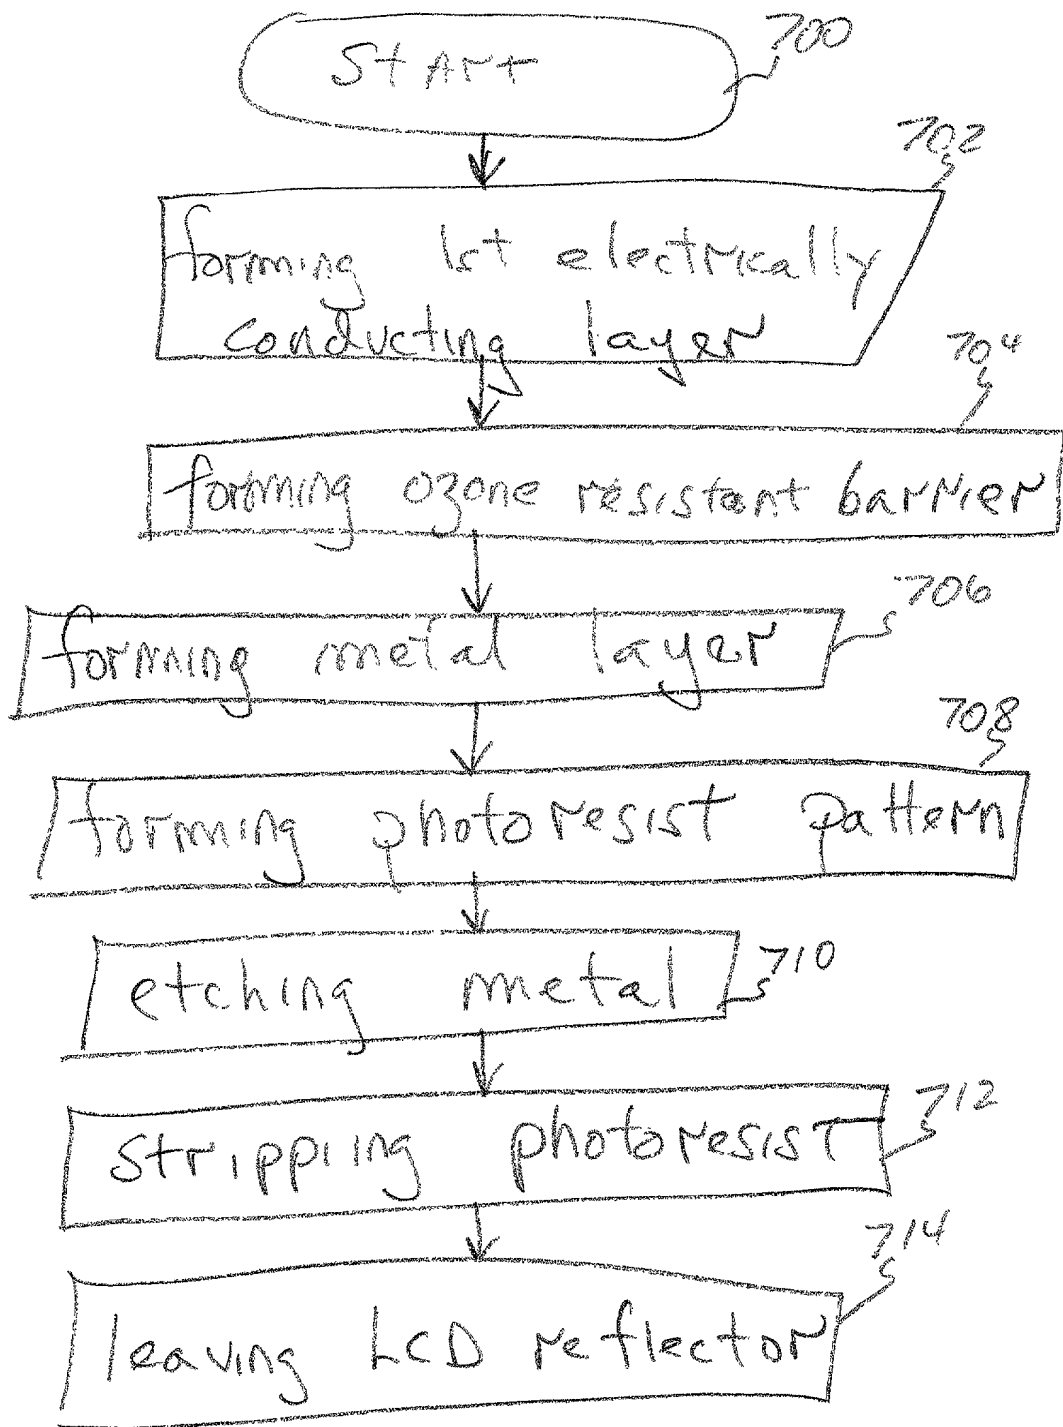 START
700
702
forming 1st electrically
conducting layer
704
forming ozone resistant barrier
706
forming metal layer
708
forming photoresist pattern
etching metal
710
stripping photoresist
712
714
leaving LCD reflector